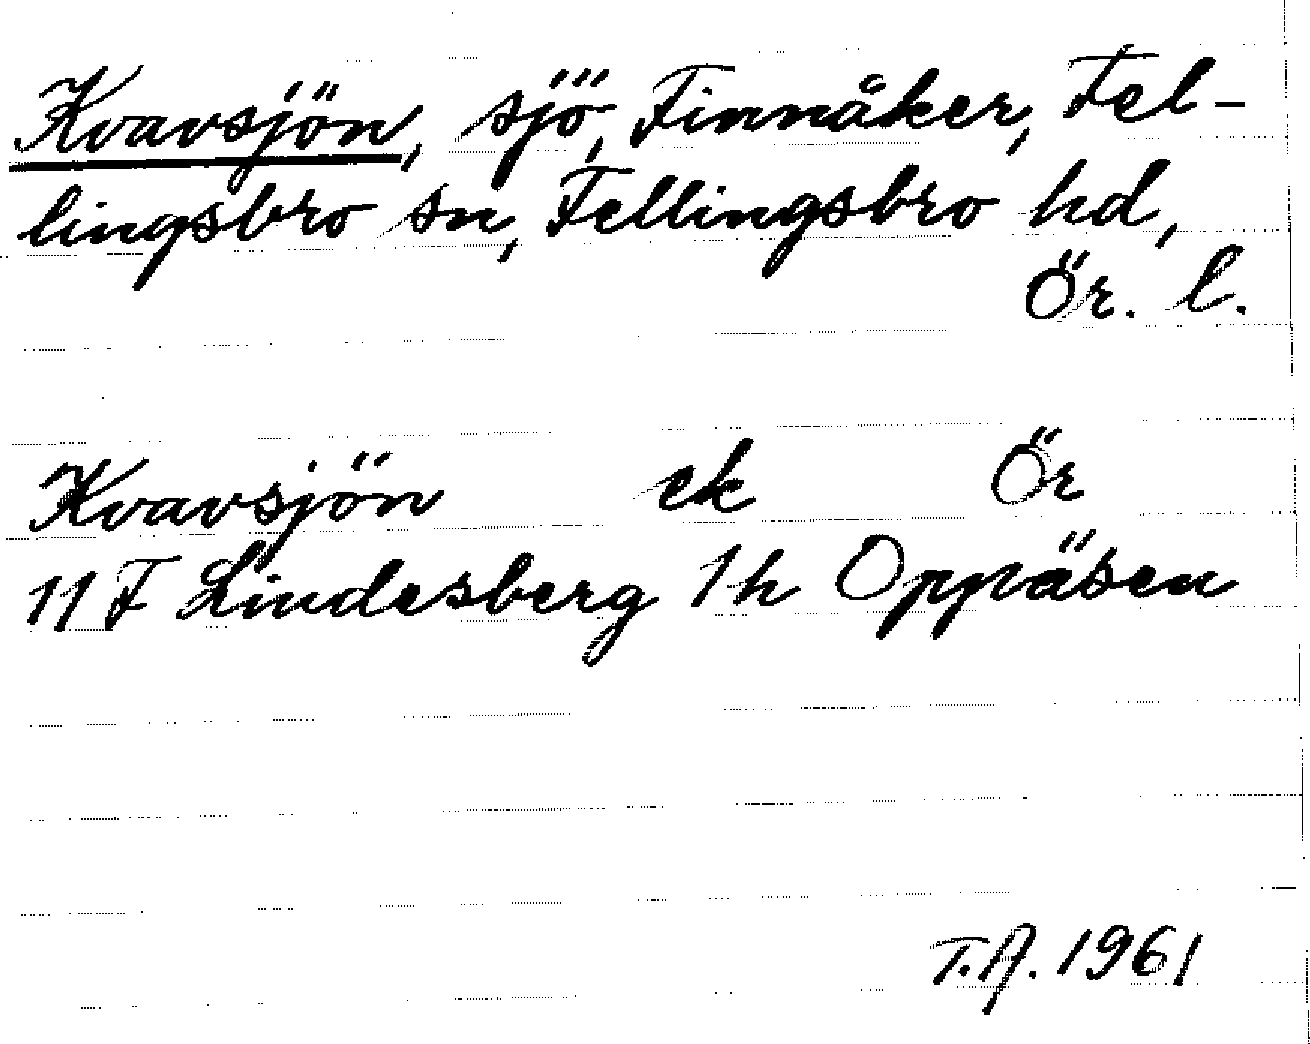 Kvavsjön, sjö, Finnåker, Fel-
lingsbro sn, Fellingsbro hd,
Ör. l.
Kvavsjön ek Ör
11 F Lindesberg 1 h Oppåsen
T.A. 1961